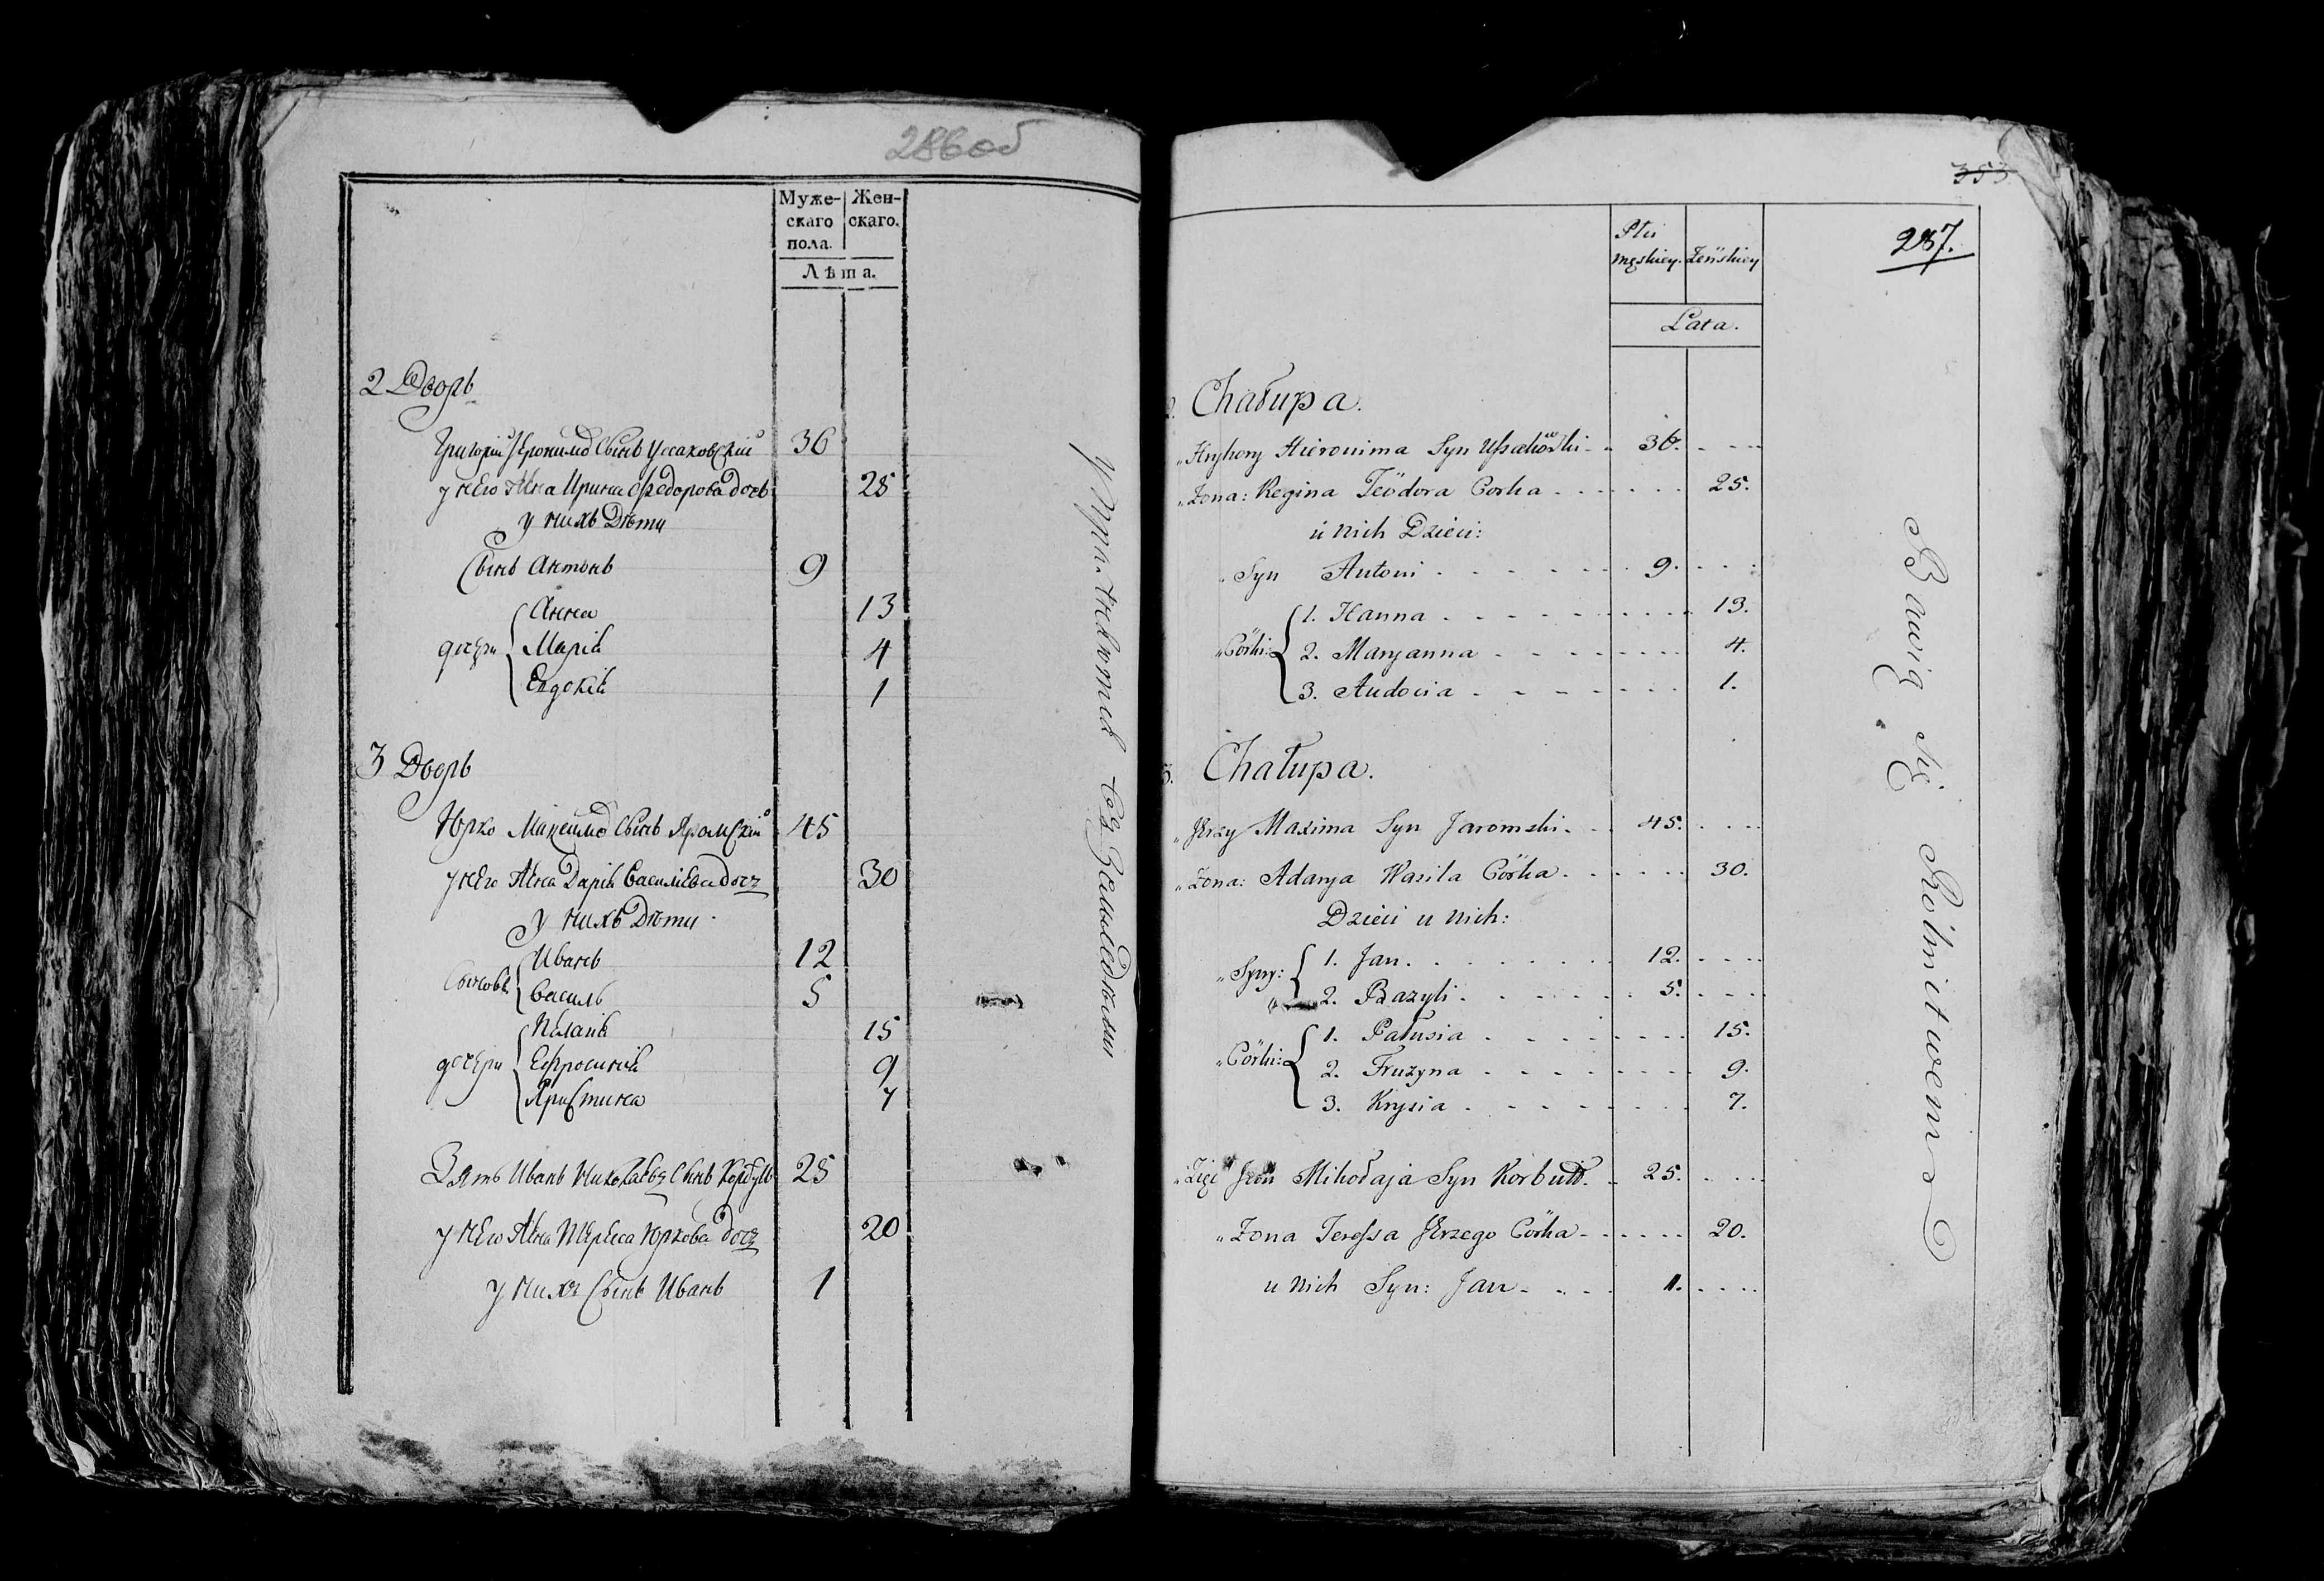 286об
Муже- Жен-
скаго скаго.
пола.
Лѣта.
2 Дворъ
Григорій Іеронимовъ Сынъ Уссаковскій 36
у него Жена Ирина Федорова дочь 25
у нихъ Дѣти
Сынъ Антонъ 9
Анна 13
дочери Марія 4
Евдокія 1
3 Дворъ
Юрко Максимовъ Сынъ Яромскій 45
у него Жена Дарія Василіева дочь 30
у нихъ Дѣти
Иванъ 12
Сыновья
Василь 5
Палагія 15
дочери Ефросинія 9
Христина 7
Зять Иванъ Николаевъ Сынъ Корбутъ 25
у него Жена Тереса Юркова дочь 20
у нихъ Сынъ Иванъ 1
Земледѣліемъ
353
287.
Płci
męskiey. Żeńskiey
Lata.
2. Chałupa.
Hryhory Hieronima Syn Ussakowski 36.
Żona: Regina Teodora Corka 25.
u nich Dzieci:
Syn Antoni 9.
1. Hanna 13.
Córki: 2. Maryanna 4.
3. Audocia 1.
3. Chałupa.
Jerzy Maxima Syn Jaromski 45.
Żona: Adarya Wasila Córka 30.
Dzieci u nich:
1. Jan. 12.
Syny:
2. Bazyli 5.
1. Pałusia 15.
Córki: 2. Fruzyna 9.
3. Krysia 7.
Zięć Jan Mikołaja Syn Korbutt. 25.
Żona Teressa Jerzego Córka 20.
u nich Syn: Jan 1.
Bawią się Rolnitwem